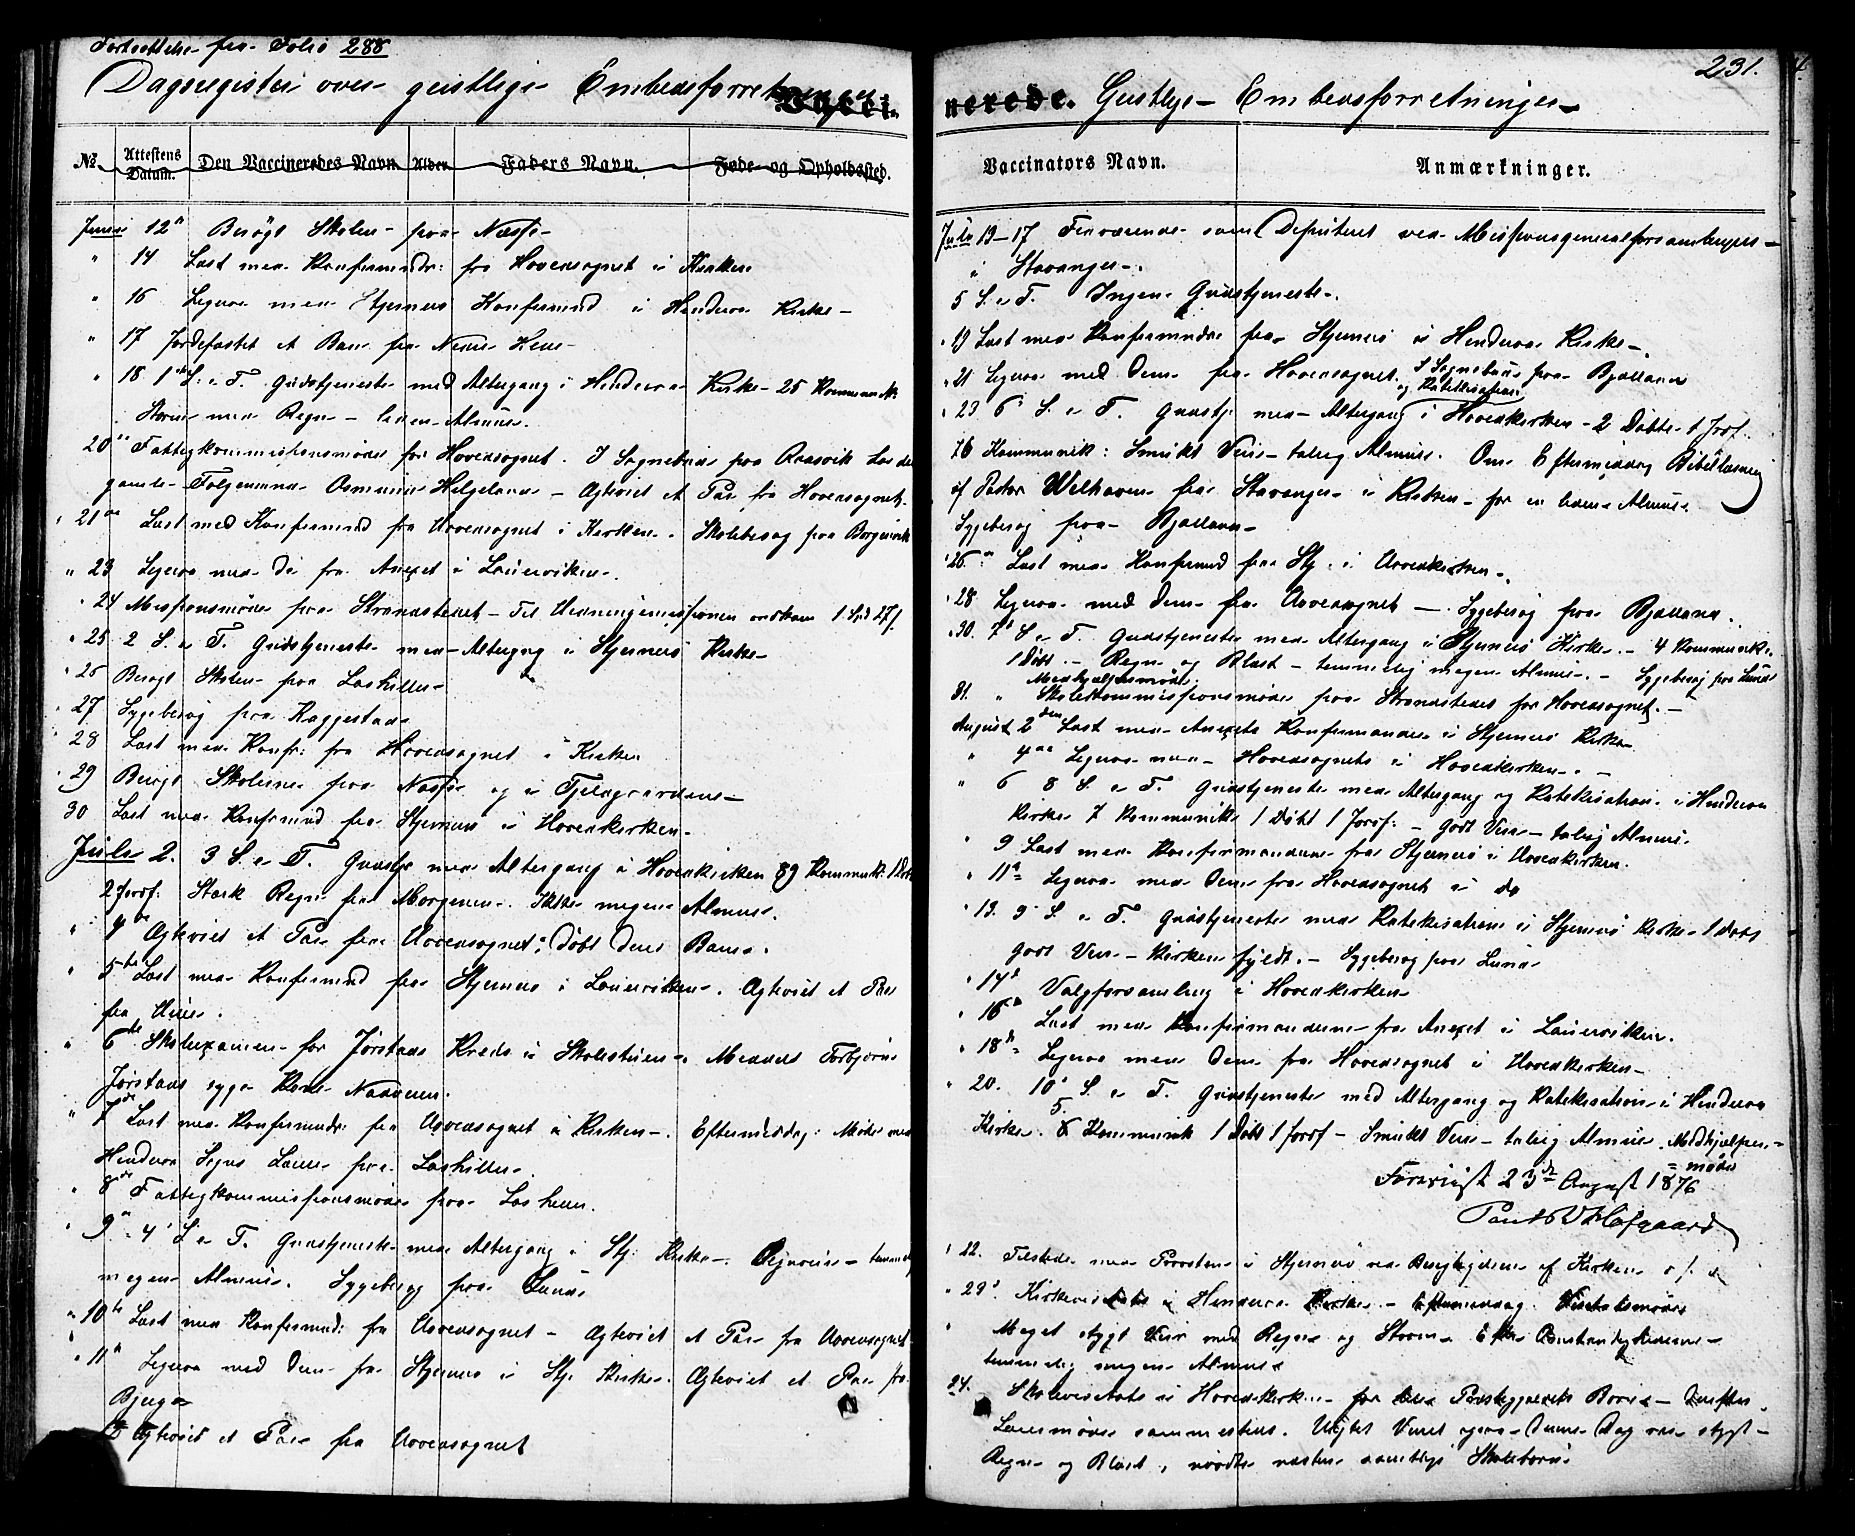 Fortsættelse fra Folio 288
Dagsregister over geistlige Embedsforretninger
Vacci-
No Attestens Datum. Den Vaccineredes Navn Alder Faders Navn. Føde- og Opholdssted.
Juni 12te Besøgt Skolen paa Næsse
" 14 Læst med Konfirmandr: fra Hovedsognet i Kirken
" 16 Ligesaa med Stjernerø Konfirmand i Hindera Kirke
" 17 Jordfæstet et Barn fra Nedre
" 18. 1ste S. e. T. Gudstjeneste med Altergang i Hinderaa Kirke 25 Kommunik:
Storm med Regn - liden Almue.
20de Fattigkommissionsmøde for Hovedsognet. I Sognebud paa Aarsvik hos den
gamle Osmund Helgeland - Ægteviet et Par fra Hovedsognet.
" 21de Læst med Konfirmand fra Hovedsognet i Kirken. Skolebesøg paa Borgenvik
" 23 Ligesaa med do fra Anexet i Lauerviken.
" 24 Missionsmøde paa Strandstedet - Til Hedningemissionen indkom 1 Spd 27 s.
" 25 2 S. e. T. Gudstjeneste med Altergang i Stjernerø Kirke
" 26 Besøgt Skolen paa Losheller
" 27 Sygebesøg paa Raggestad
" 28 Læst med Konfr: fra Hovedsognet i Kirken
" 29 Besøgt Skolerne paa Næsse og i
30 Læst med Konfirmand fra Stjernerø i Hovedkirken
Juli 2. 3 S. e. T. Gudstj med Altergang i Hovedkirken 89 Kommunik: 1 Døbt
2 Jordf: Stærk Regn fra Morgenen. Ikke megen Almue.
" 4de Ægteviet et Par fra Hovedsognet; døbt deres Barn.
" 5te Læst med Konfirmand fra Stjernerø i Lauerviken. Ægteviet et Par
fra
" 6te Skolexamen for Jørstads Kreds i Skolestuen. Meddelt Torbjørn
Jørstads syge Kone Nadveren.
" 7de Læst med Konfirmandr: fra Hovedsognet i Kirken. Eftermiddag: Møde med
Hinderaa Sogns paa Losheller.
" 8de Fattigkommissionsmøde paa Loshellen.
" 9de 4' S. e. T. Gudstjeneste med Altergang i Stj: Kirke. Regnveir - temmelig
megen Almue. Sygebesøg paa Lunde
" 10de Læst med Konfirmand: fra Hovedsognet - Ægteviet et Par fra Hovedsognet
" 11te Ligesaa med Dem fra Stjernerø i Stj. Kirke. Ægteviet et Par fra
Bjerga
12 Ægteviet et Par fra Hovedsognet
231.
nerede. Geistlige Embedsforretninger
Vaccinators Navn. Anmærkninger.
Juli 13-17 Fraværende som Deputeret ved Missionsgeneralforsamlingen
i Stavanger.
5 S. e. T. Ingen Gudstjeneste.
" 19 Læst med Konfirmander fra Stjernerø i Hinderaa Kirke.
" 21 Ligesaa med Dem fra Hovedsognet. I Sognebud paa Bjelland
og Katekisation
" 23 6' S. e. T. Gudstj med Altergang i Hovedkirken - 2 Døbte 1 Jordf.
76 Kommunik: Smukt Veir - talrig Almue. Om Eftermiddag Bibellæsning
af Pastor Welhaven fra Stavanger i Kirken for en liden Almue.
Sygebesøg paa Bjelland
" 26de Læst med Konfirmand fra Stj. i Hovedkirken.
" 28 Ligesaa med Dem fra Hovedsognet - Sygebesøg paa Bjelland.
" 30. 7' S. e. T. Gudstjeneste med Altergang i Stjernerø Kirke. - 4 Kommunik:
1 Døbt. - Regn og Blæst - temmelig megen Almue. - Sygebesøg paa Lunde
Medhjælpermøde.
31. " Skolekommissionsmøde paa Strandstedet for Hovedsognet. -
August 2den Læst med Anexets Konfirmander i Stjernerø Kirke
" 4de Ligesaa med Hovedsognets i Hovedkirken. -
" 6 8 S. e. T. Gudstjeneste med Altergang og Katekisation i Hinderaa
Kirke 7 Kommunik 1 Døbt 1 Jordf: - godt Veir - talrig Almue.
" 9 Læst med Konfirmanderne fra Stjernerø i Hovedkirken.
" 11te Ligesaa med Dem fra Hovedsognet i do
" 13. 9' S. e. T. Gudstjeneste med Katekisation i Stjernerø Kirke 1 Døbt
godt Veir - Kirken fyldt. - Sygebesøg paa Lunde
" 14d Valgforsamling i Hovedkirken
" 16de Læst med Konfirmanderne fra Anexet i Lauerviken.
" 18de Ligesaa med Dem fra Hovedsognet i Hovedkirken
" 20. 10' S. e. T. Gudstjeneste med Altergang og Katekisation i Hinderaa
Kirke. 5. Kommunik 1 Døbt 1 Jordf - Smukt Veir - talrig Almue. Medhjælper-
møde
Forevist 23de August 1876
Hofgaard
" 22. Tilstede med Provsten i Stjernerø ved Besigtigelsen af Kirken o. s. v.
" 23d. Kirkevisitats i Hinderaa Kirke - Eftermiddag Visitatsmøde
" Meget stygt Veir med Regn og Storm. Efter Omstændighederne
temmelig megen Almue
24. Skolevisitats i Hovedkirken for hele Præstegjeldets Børn - Derefter
Lærermøde sammesteds. Uagtet Veiret ogsaa denne Dag var stygt -
Regn og Blæst, mødte næsten samtlige Skolebørn